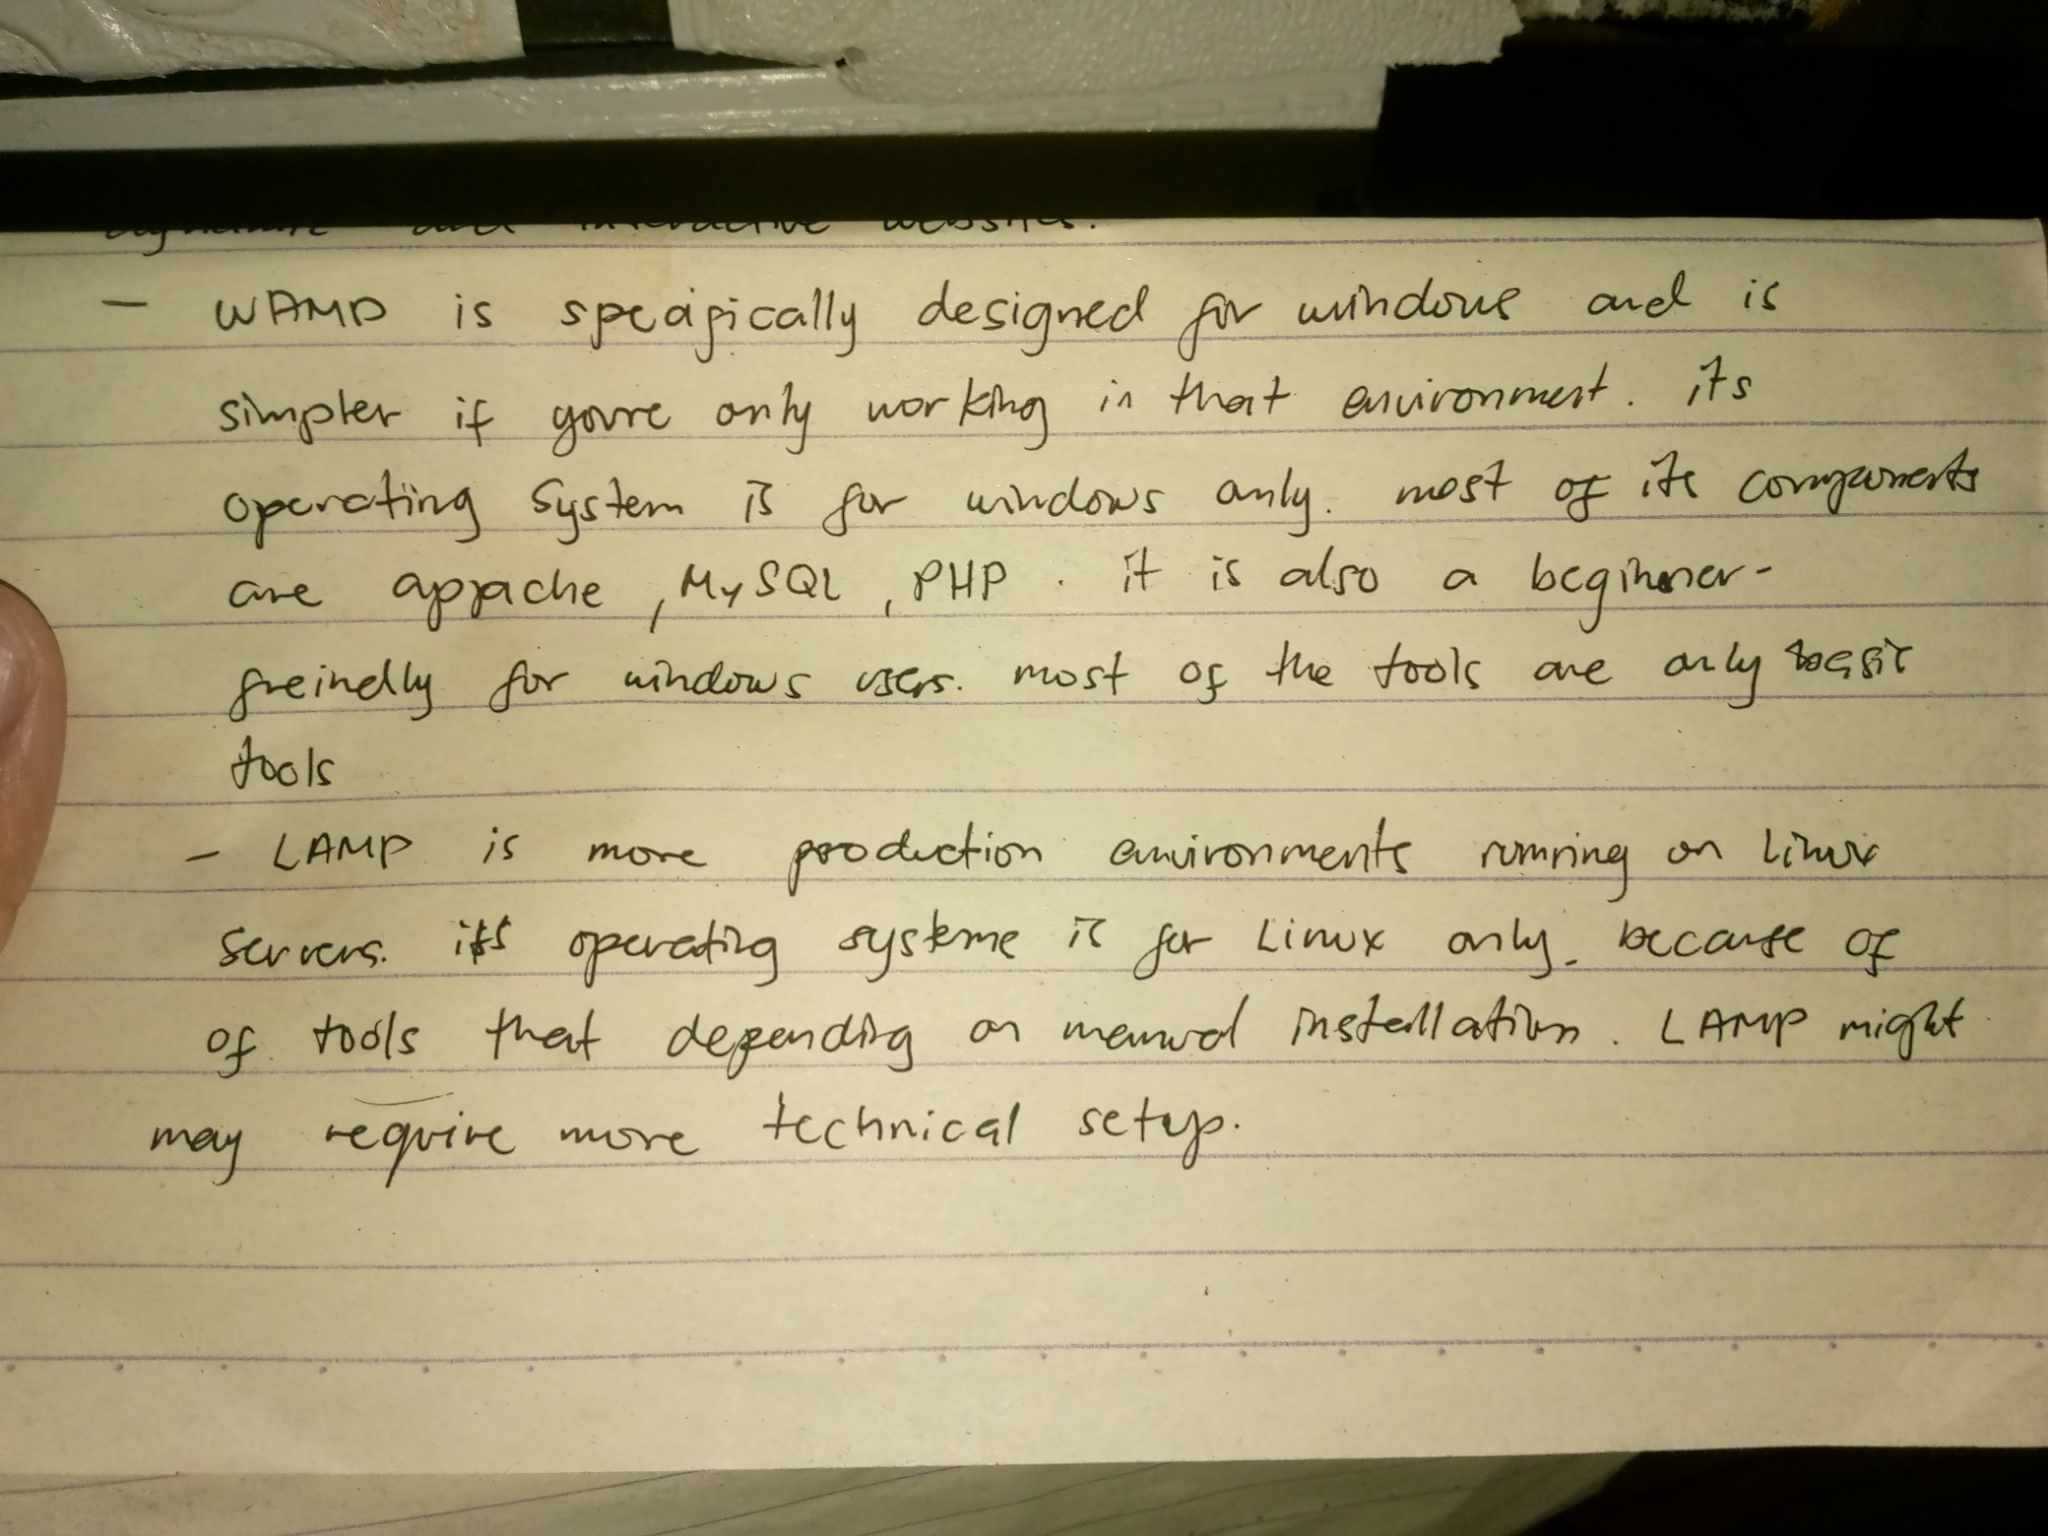 dynamic and interactive websites.
- WAMP is specifically designed for windows and is
simpler if youre only working in that environment. its
operating system is for windows only. most of its components
are appache, MySQL, PHP. it is also a beginner-
freindly for windows users. most of the tools are only basic
tools
- LAMP is more production environments running on Linux
servers. its operating systeme is for Linux only. because of
of tools that depending on manual installation. LAMP might
may require more technical setup.